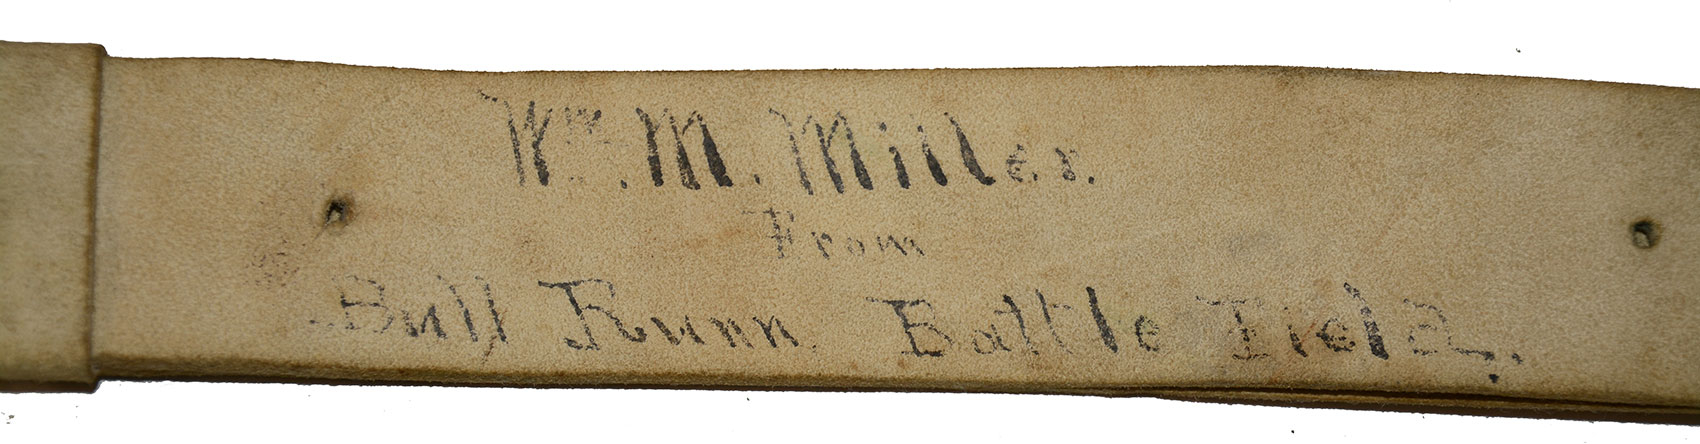 Wm. M. Miller.
From
Bull Runn. Battle Field.